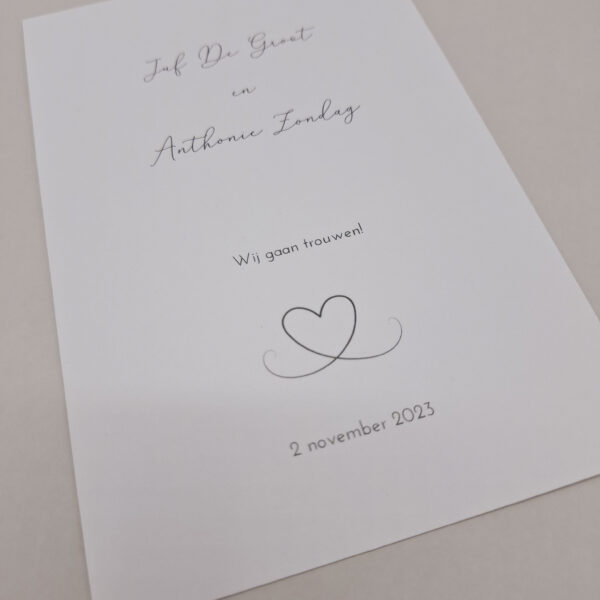 Jaf De Groot
en
Anthonie Zondag
Wij gaan trouwen!
2 november 2023